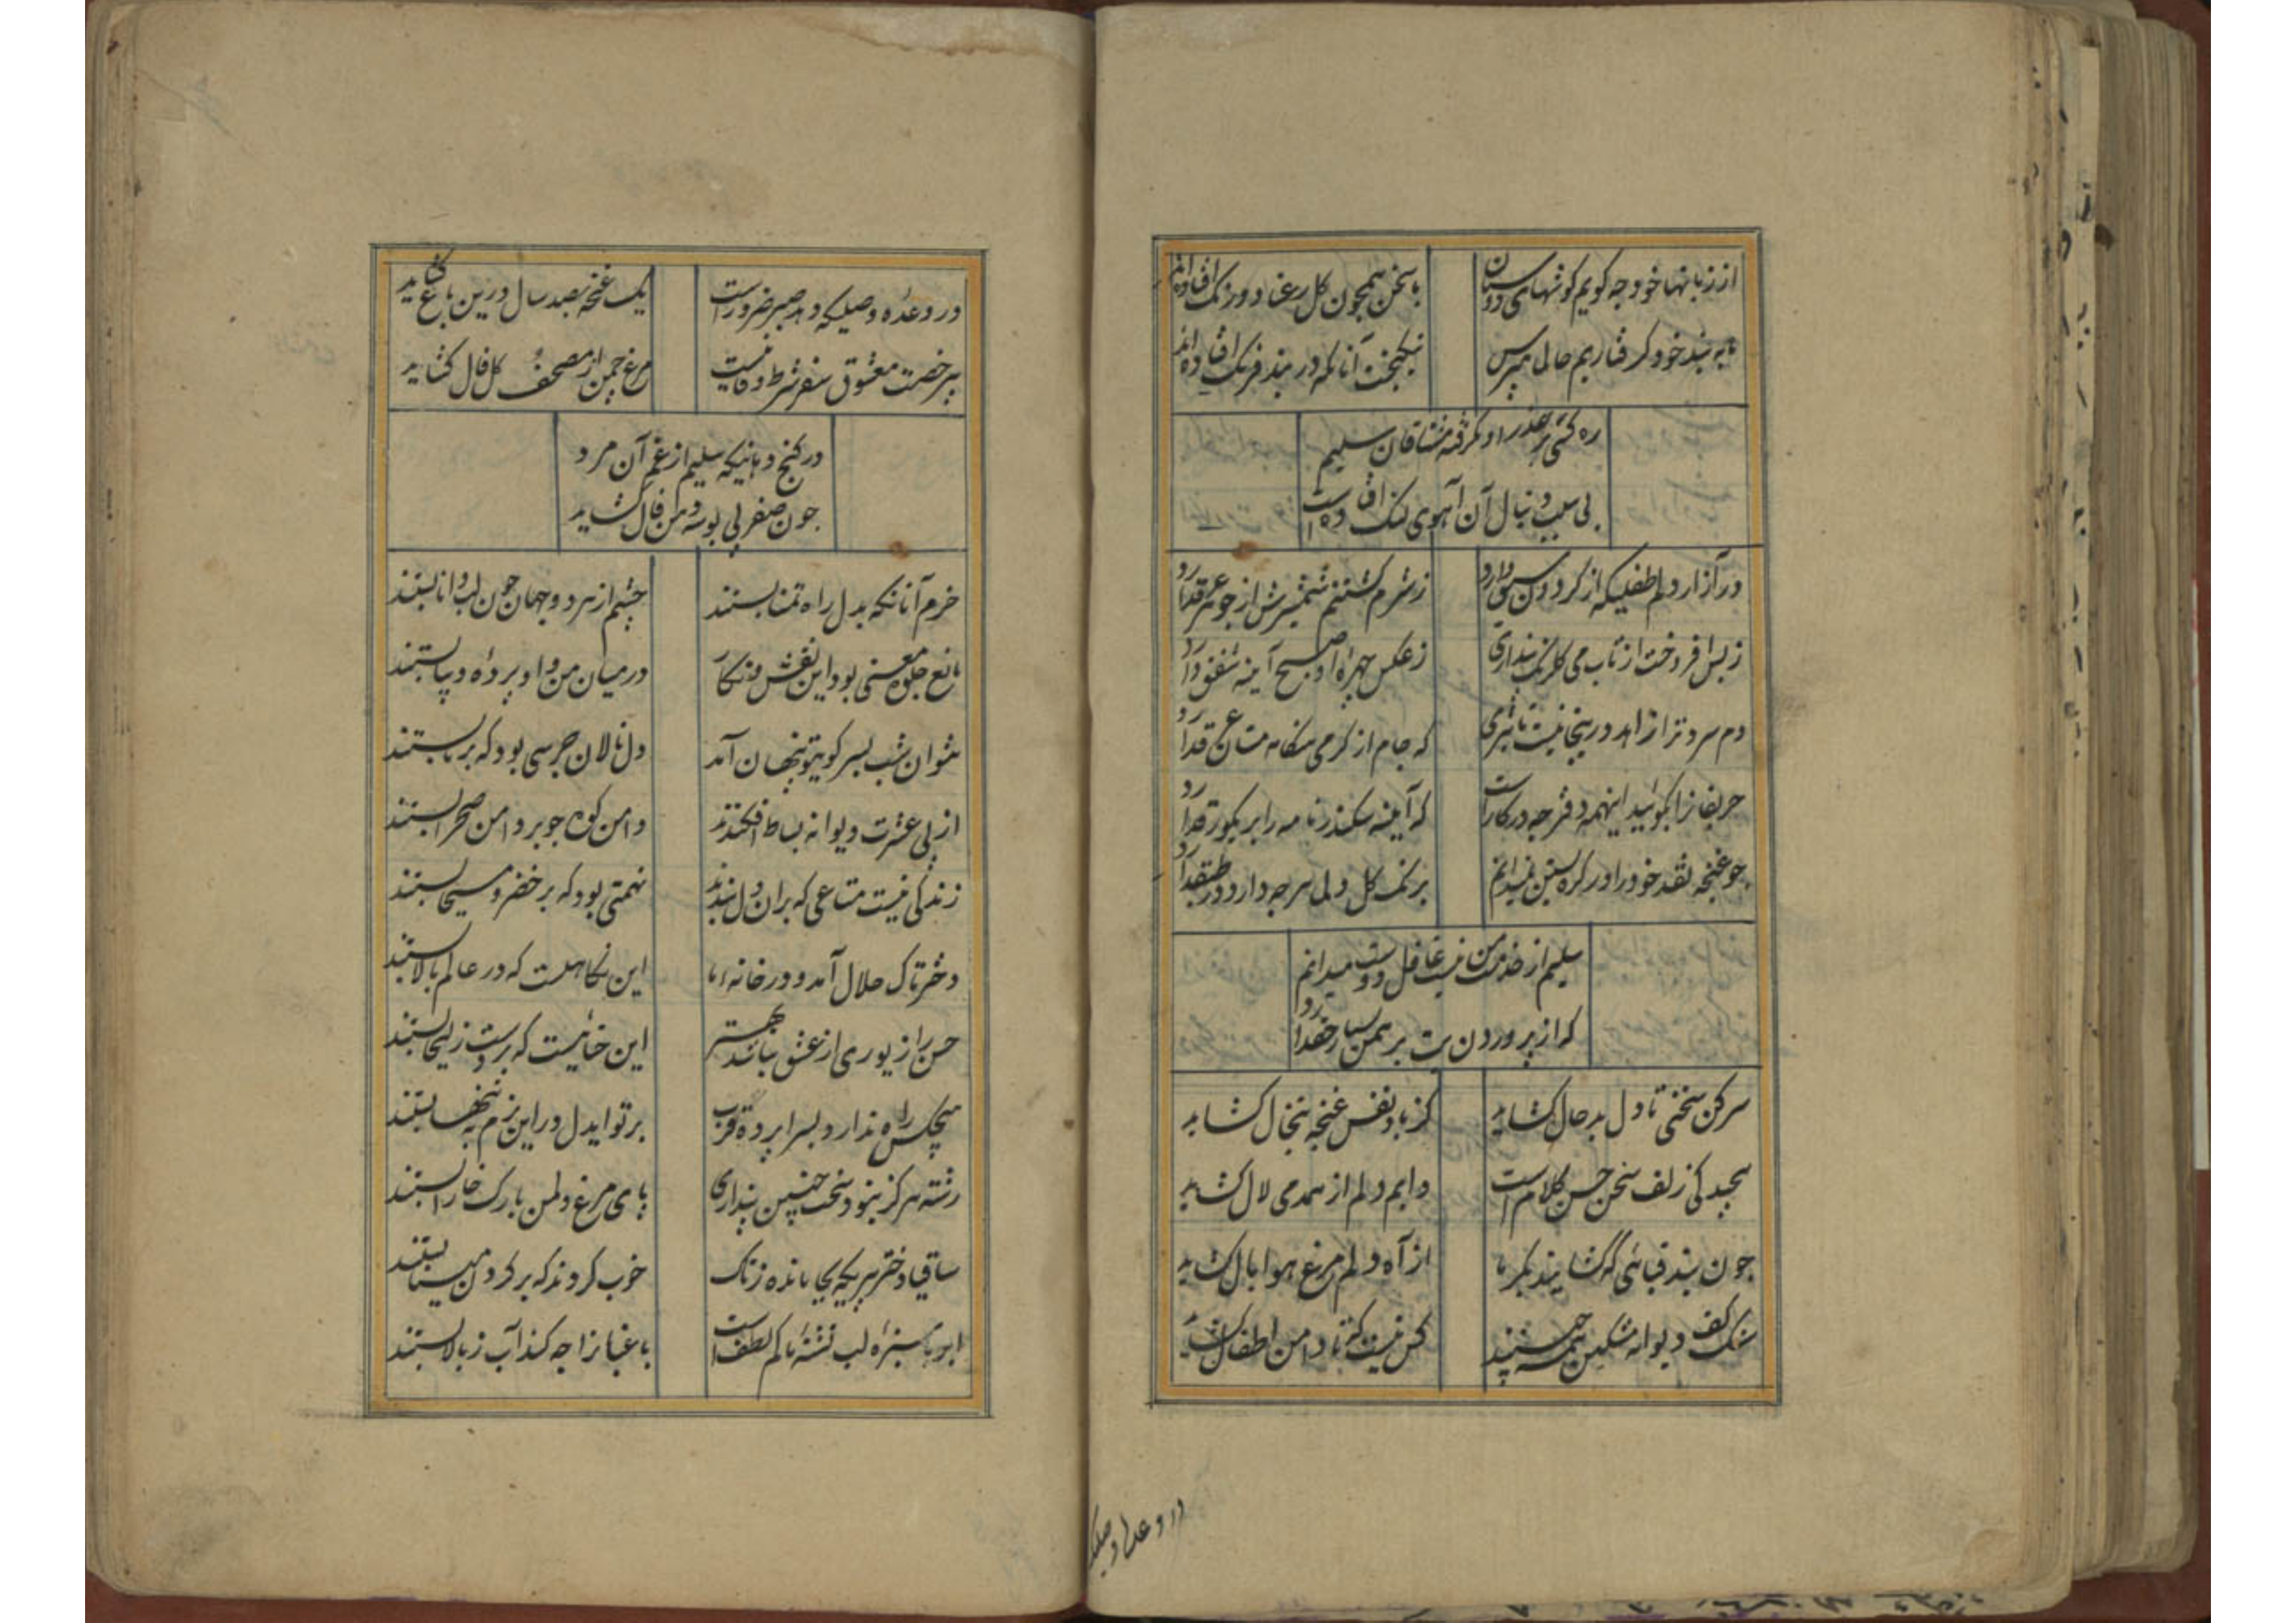 از زبانها خود چه گویم گوشهای دوستان
با سخن همچون گل رعنا دو رنگ افتاده‌اند
ما به بند خود گرفتاریم حال ما مپرس
نیکبخت آنانکه در بند فرنگ افتاده‌اند
مشتاقان سلیم
دنبال آن آهوی لنگ افتاده است
در آزار دلم طفلیکه از گردون سبق دارد
ز شرم کشتنم شمشیرش از جوهر عرق دارد
ز بس افروخت از تاب می گلرنگ پنداری
ز عکس چهره او صبح آینه شفق دارد
دم سرد ترا زاهد درینجا نیست تاثیری
که جام از گرمی هنگامه مستان عرق دارد
حریفانرا بگوئید اینهمه دفتر چه درکارست
که آیینه سکندرنامه را بر یکورق دارد
چو غنچه نقد خود را در گره بستن نمیدانم
برنگ گل دلم هر چه دارد در طبق دارد
سلیم از خدمت من نیست غافل دوست میدانم
که از پروردن بت برهمن بسیار حق دارد
سر کن سخنی تا دل بدحال گشاید
کز باد نفس غنچه تبخال گشاید
پیچیدگی زلف سخن حسن کلام است
دایم دلم از همدمی لال گشاید
چون بند قبائی که گشایند بکر ما
از آه دلم مرغ هوا بال گشاید
سنگ کف دیوانه مشکین همه چیدند
کس نیست که تا دامن اطفال گشاید
در وعده وصلیک
در وعده وصلیکه دهد صبر ضرور است
یک غنچه بصد سال درین باغ گشاید
بی رخصت معشوق سفر شرط وفا نیست
مرغ چمن از مصحف گل فال گشاید
در کنج دهانیکه سلیم از غم آن مرد
چون صفر لبی بوسه دهن فال گشاید
خرم آنانکه بدل راه تمنا بستند
چشم از هر دو جهان چون لب دانا بستند
مانع جلوه معنی بود این نقش و نگار
در میان من و او پرده دیبا بستند
نتوان شب بسر کویتو پنهان آمد
دل نالان جرسی بود که بر ما بستند
از پی عشرت دیوانه بساط افکندند
دامن کوه چو بر دامن صحرا بستند
زندگی نیست متاعی که بران دل بندند
تهمتی بود که بر خضر و مسیحا بستند
دختر تاک حلال آمد و در خانه ما
این نکاهست که در عالم بالا بستند
حسن را زیوری از عشق نباشد بهتر
این حنائیست که بر دست زلیخا بستند
هیچکس راه ندارد بسراپرده قرب
بر تو ایدل در این بزم نه تنها بستند
رشته هرگز نبود سخت چنین پنداری
پای مرغ دلم از رگ خارا بستند
ساقیا دختر
خوب کردند که بر گردن مینا بستند
ابر با سبزه لب تشنه ما کم لطف است
باغبانرا چه کند آب ز بالا بستند